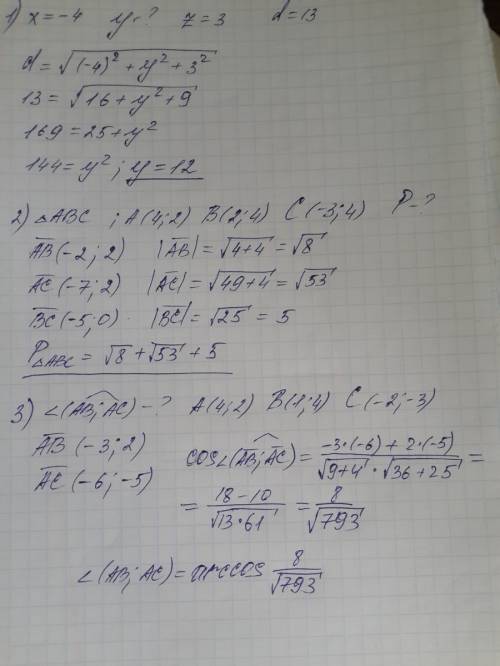 1) x = -4 y-? z = 3 d = 13
d = √((-4)² + y² + 3²)
13 = √(16 + y² + 9)
169 = 25 + y²
144 = y² ; y = 12
2) △ABC ; A(4;2) B(2;4) C(-3;4) P-?
AB̅(-2;2) |AB̅| = √(4+4) = √8
AC̅(-7;2) |AC̅| = √(49+4) = √53
BC̅(-5;0) |BC̅| = √25 = 5
P△ABC = √8 + √53 + 5
3) ∠(AB; AC) - ? A(4;2) B(1;4) C(-2;-3)
AB̅(-3;2)
AC̅(-6;-5)
cos∠(AB̅; AC̅) = (-3·(-6) + 2·(-5))/(√(9+4) · √(36+25)) =
= (18-10)/√(13·61) = 8/√793
∠(AB; AC) = arccos 8/√793